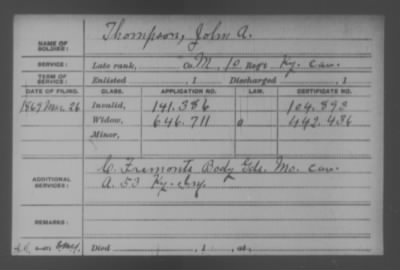 NAME OF SOLDIER: Thompson, John A.
SERVICE: Late rank, Co. M, 10 Reg't Ky. Cav.
TERM OF SERVICE: Enlisted , 1 Discharged , 1
DATE OF FILING. CLASS. APPLICATION NO. LAW. CERTIFICATE NO.
1869 Mar. 26 Invalid, 141.386 104.893
Widow, 646.711 442.436
Minor,
ADDITIONAL SERVICES: C. Fremonts Body Gds. Mo. Cav.
A. 53 Ky. Inf.
REMARKS:
Died , 1 , at